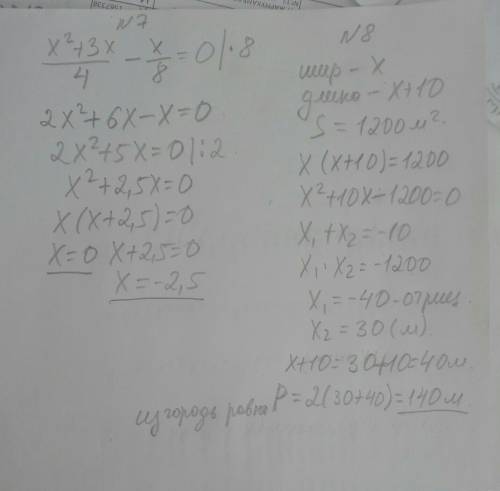 N7
x²+3x/4 − x/8 = 0 |·8
2x²+6x−x=0
2x²+5x=0 |:2
x²+2,5x=0
x(x+2,5)=0
x=0 x+2,5=0
x=−2,5
N8
шир − x
длина − x+10
S = 1200 м².
x(x+10)=1200
x²+10x−1200=0
x₁+x₂=−10
x₁·x₂=−1200
x₁=−40-отриц.
x₂=30(м).
x+10=30+10=40м.
изгородь равна P=2(30+40)=140м.